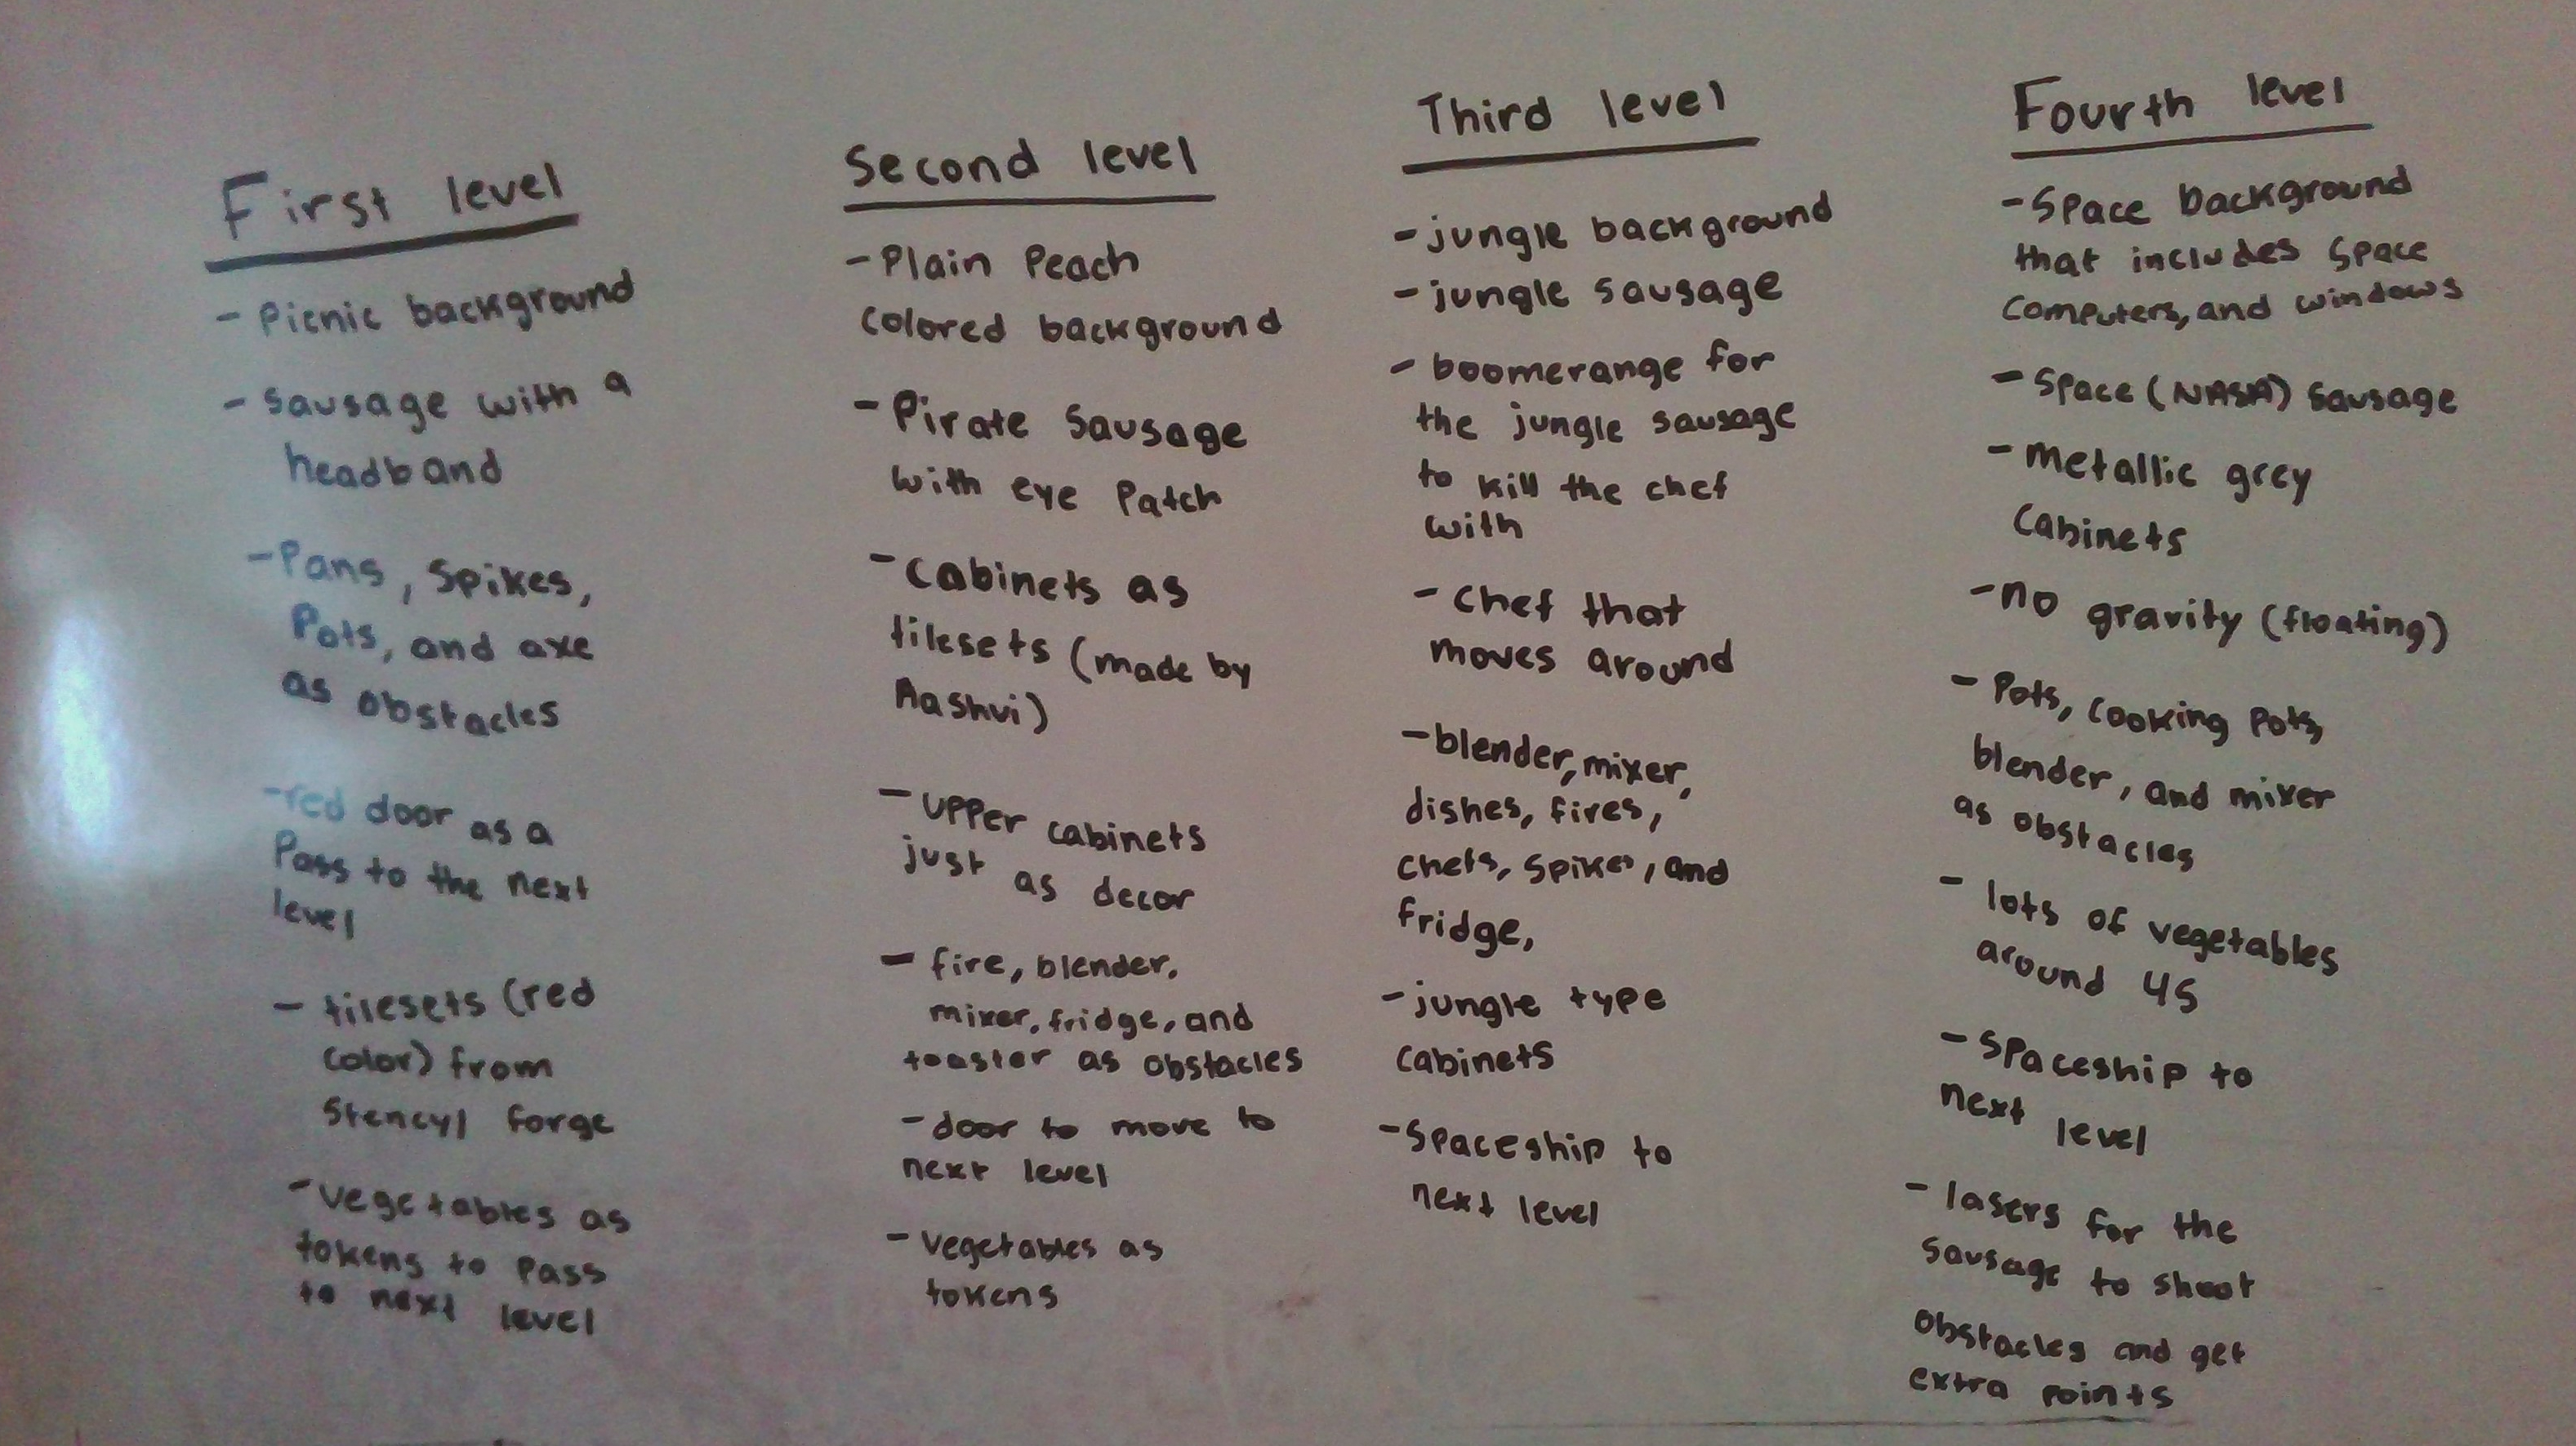 First level
- Picnic background
- Sausage with a
headband
- Pans, Spikes,
Pots, and axe
as obstacles
- red door as a
Pass to the next
level
- tilesets (red
color) from
Stencyl forge
- vegetables as
tokens to pass
to next level
Second level
- Plain Peach
colored background
- Pirate Sausage
with eye Patch
- Cabinets as
tilesets (made by
Aashvi)
- upper cabinets
just as decor
- fire, blender,
mixer, fridge, and
toaster as obstacles
- door to move to
next level
- vegetables as
tokens
Third level
- jungle background
- jungle sausage
- boomerange for
the jungle sausage
to kill the chef
with
- Chef that
moves around
- blender, mixer,
dishes, fires,
chefs, spikes, and
fridge,
- jungle type
cabinets
- Spaceship to
next level
Fourth level
- Space background
that includes Space
Computers, and windows
- Space (NASA) Sausage
- metallic grey
Cabinets
- no gravity (floating)
- Pots, cooking Pots,
blender, and mixer
as obstacles
- lots of vegetables
around 45
- Spaceship to
next level
- lasers for the
sausage to shoot
obstacles and get
extra points